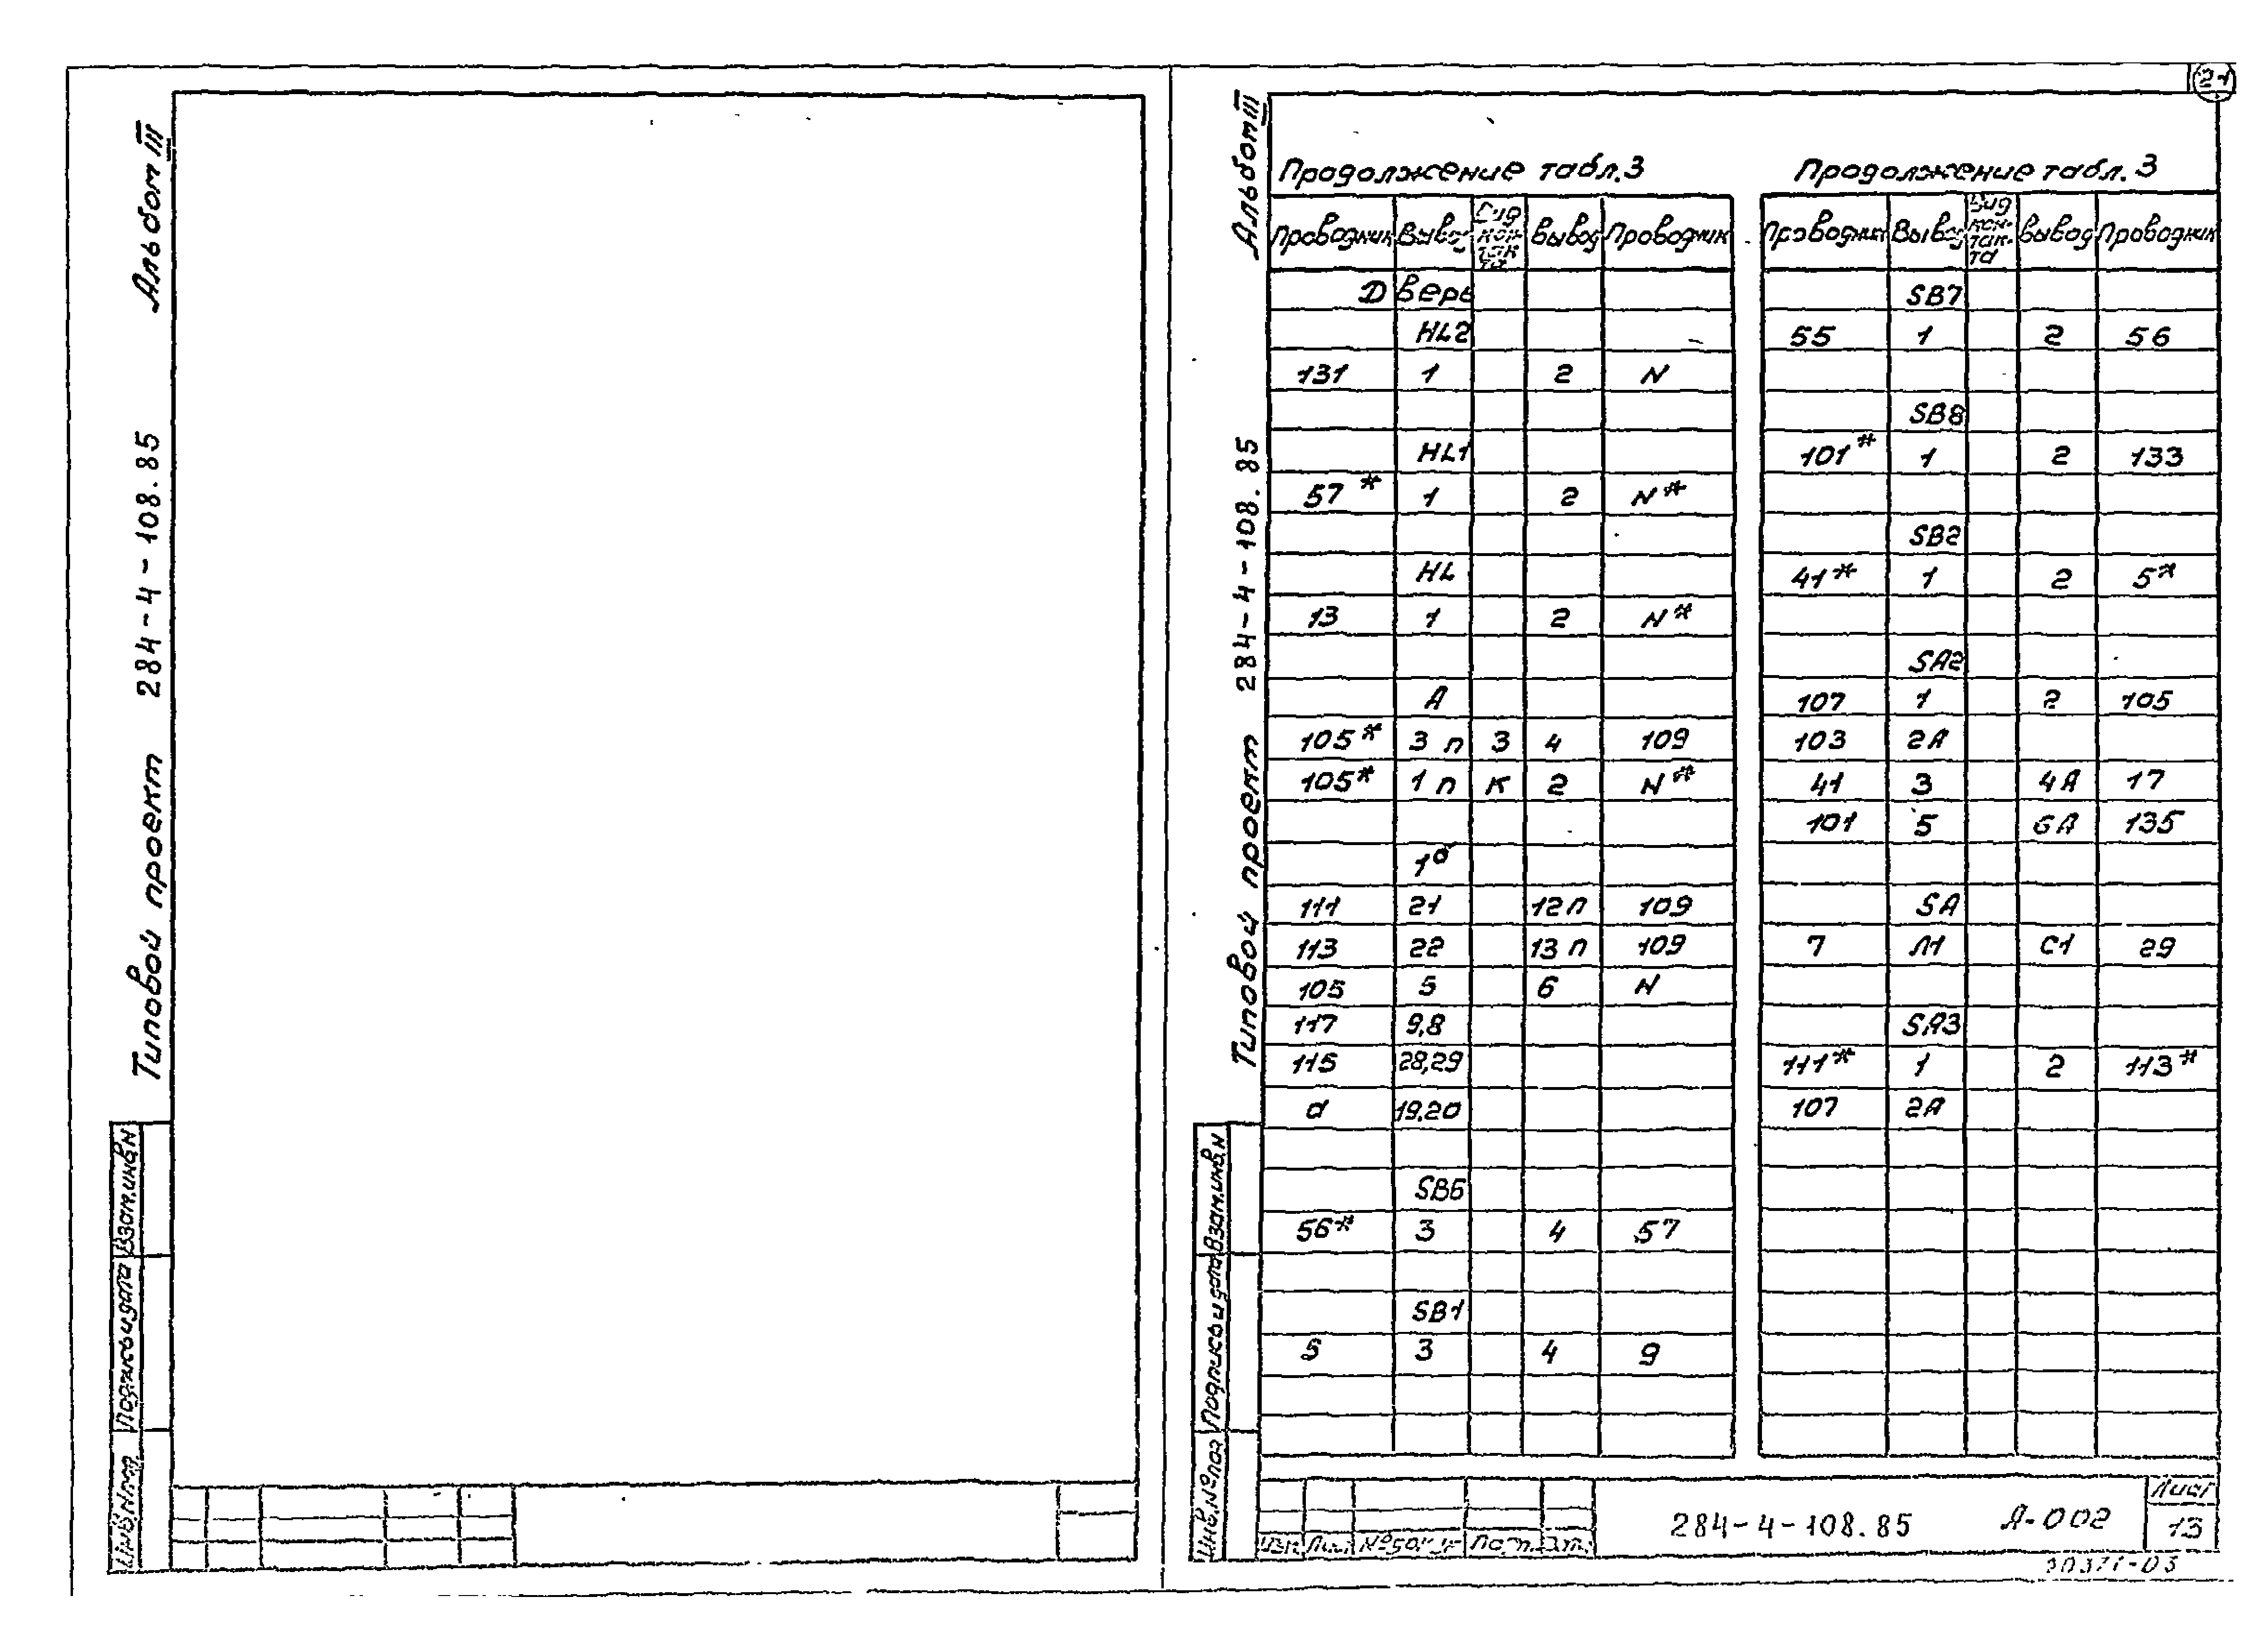 Альбом III
Типовой проект 284-4-108.85
Взам.инв.N
Подпись и дата
21
Альбом III
Типовой проект 284-4-108.85
Взам.инв.N
Подпись и дата
Инв.№ подл
Продолжение табл.3
Проводник Вывод Вид контакта Вывод Проводник
Дверь
HL2
131 1 2 N
HL1
57* 1 2 N*
HL
13 1 2 N*
A
105* 3 п З 4 109
105* 1 п К 2 N*
10
111 21 12 п 109
113 22 13 п 109
105 5 6 N
117 9,8
115 28,29
а 19,20
SB6
56* 3 4 57
SB1
5 3 4 9
Продолжение табл.3
Проводник Вывод Вид контакта Вывод Проводник
SB7
55 1 2 56
SB8
101* 1 2 133
SB2
41* 1 2 5*
SA2
107 1 2 105
103 2А
41 3 4А 17
101 5 6А 135
SA
7 Л1 С1 29
SA3
111* 1 2 113*
107 2А
284-4-108.85 А-002
Лист
13